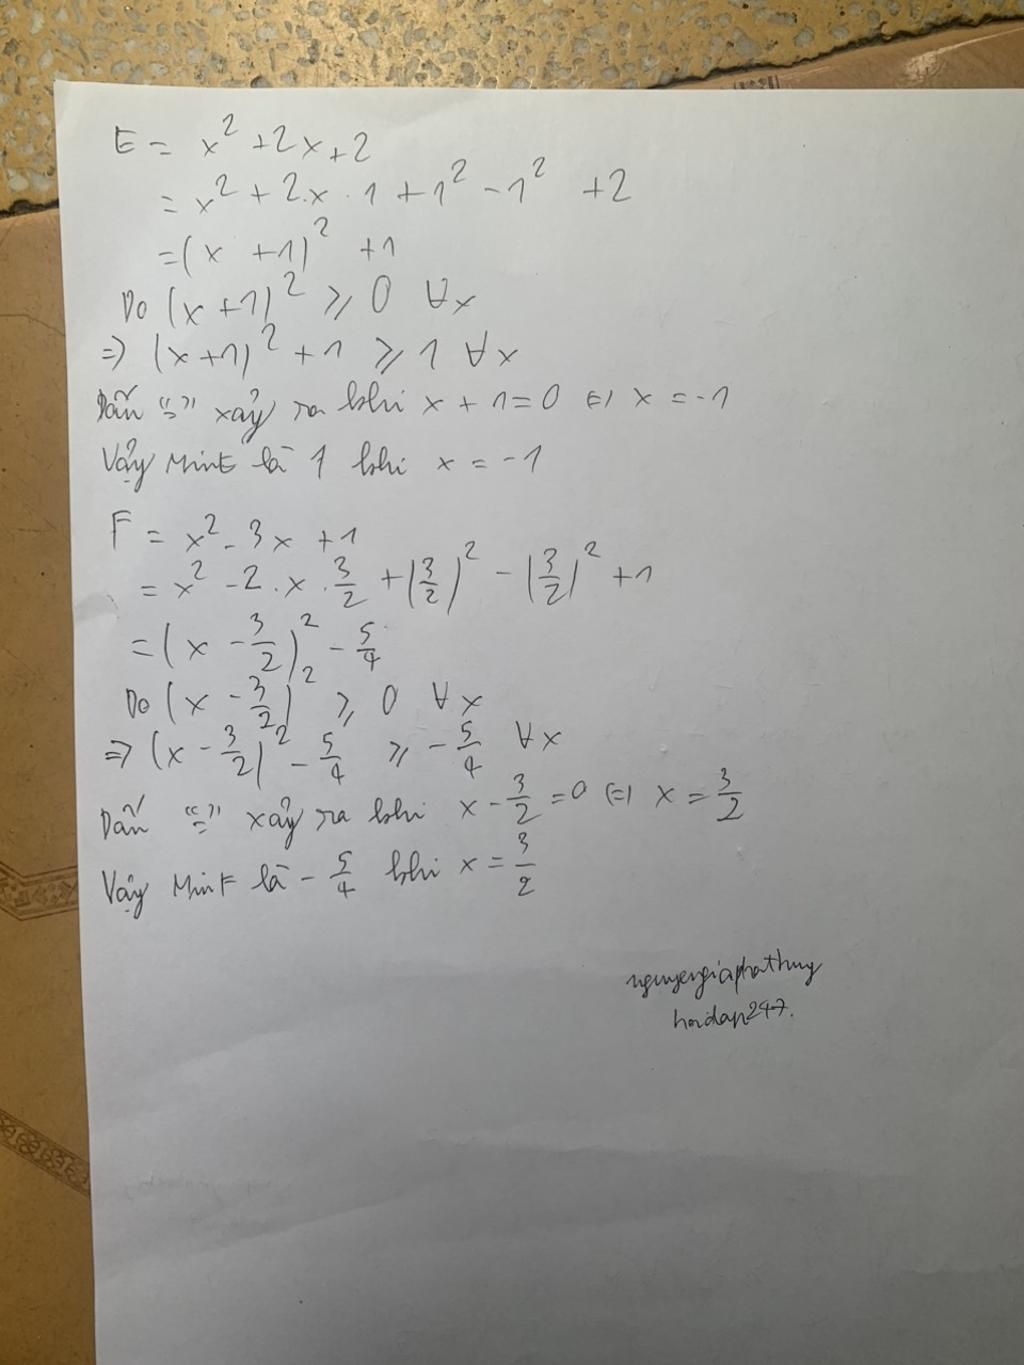 E = x² + 2x + 2
= x² + 2.x . 1 + 1² - 1² + 2
= (x + 1)² + 1
Do (x + 1)² ⩾ 0 ∀x
=> (x + 1)² + 1 ⩾ 1 ∀x
Dấu "=" xảy ra khi x + 1 = 0 <=> x = -1
Vậy MinE là 1 khi x = -1
F = x² - 3x + 1
= x² - 2 . x . 3/2 + (3/2)² - (3/2)² + 1
= (x - 3/2)² - 5/4
Do (x - 3/2)² ⩾ 0 ∀x
=> (x - 3/2)² - 5/4 ⩾ - 5/4 ∀x
Dấu "=" xảy ra khi x - 3/2 = 0 <=> x = 3/2
Vậy MinF là - 5/4 khi x = 3/2
nguyengiaphathuy
hoidap247.